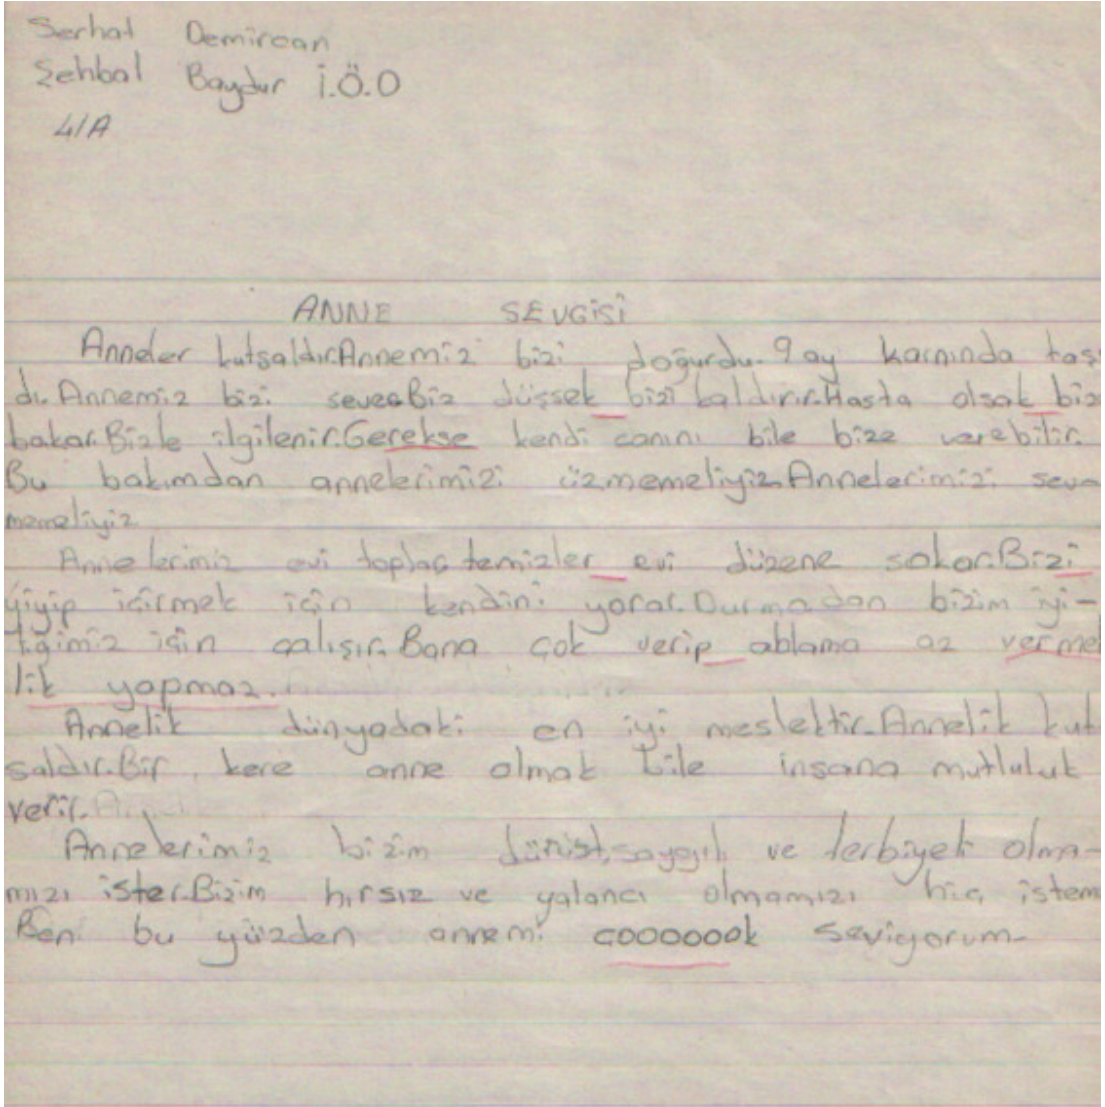 Serhat Demircan
Şehbal Baydur İ.Ö.O
4/A
ANNE SEVGİSİ
Anneler kutsaldır.Annemiz bizi doğurdu.9 ay karnında taşı
dı.Annemiz bizi sever.Biz düşsek bizi kaldırır.Hasta olsak biz
bakar.Bizle ilgilenir.Gerekse kendi canını bile bize verebilir.
Bu bakımdan annelerimizi üzmemeliyiz.Annelerimizi seve
memeliyiz
Annelerimiz evi toplar,temizler evi düzene sokar.Bizi
yiyip içirmek için kendini yorar.Durmadan bizim iyi-
liğimiz için çalışır.Bana çok verip ablama az vermek
lik yapmaz.
Annelik dünyadaki en iyi meslektir.Annelik kut
saldır.Bir kere anne olmak bile insana mutluluk
verir.
Annelerimiz bizim dürüst,saygılı ve terbiyeli olma-
mızı ister.Bizim hırsız ve yalancı olmamızı hiç istem
Ben bu yüzden annemi çooooook seviyorum.